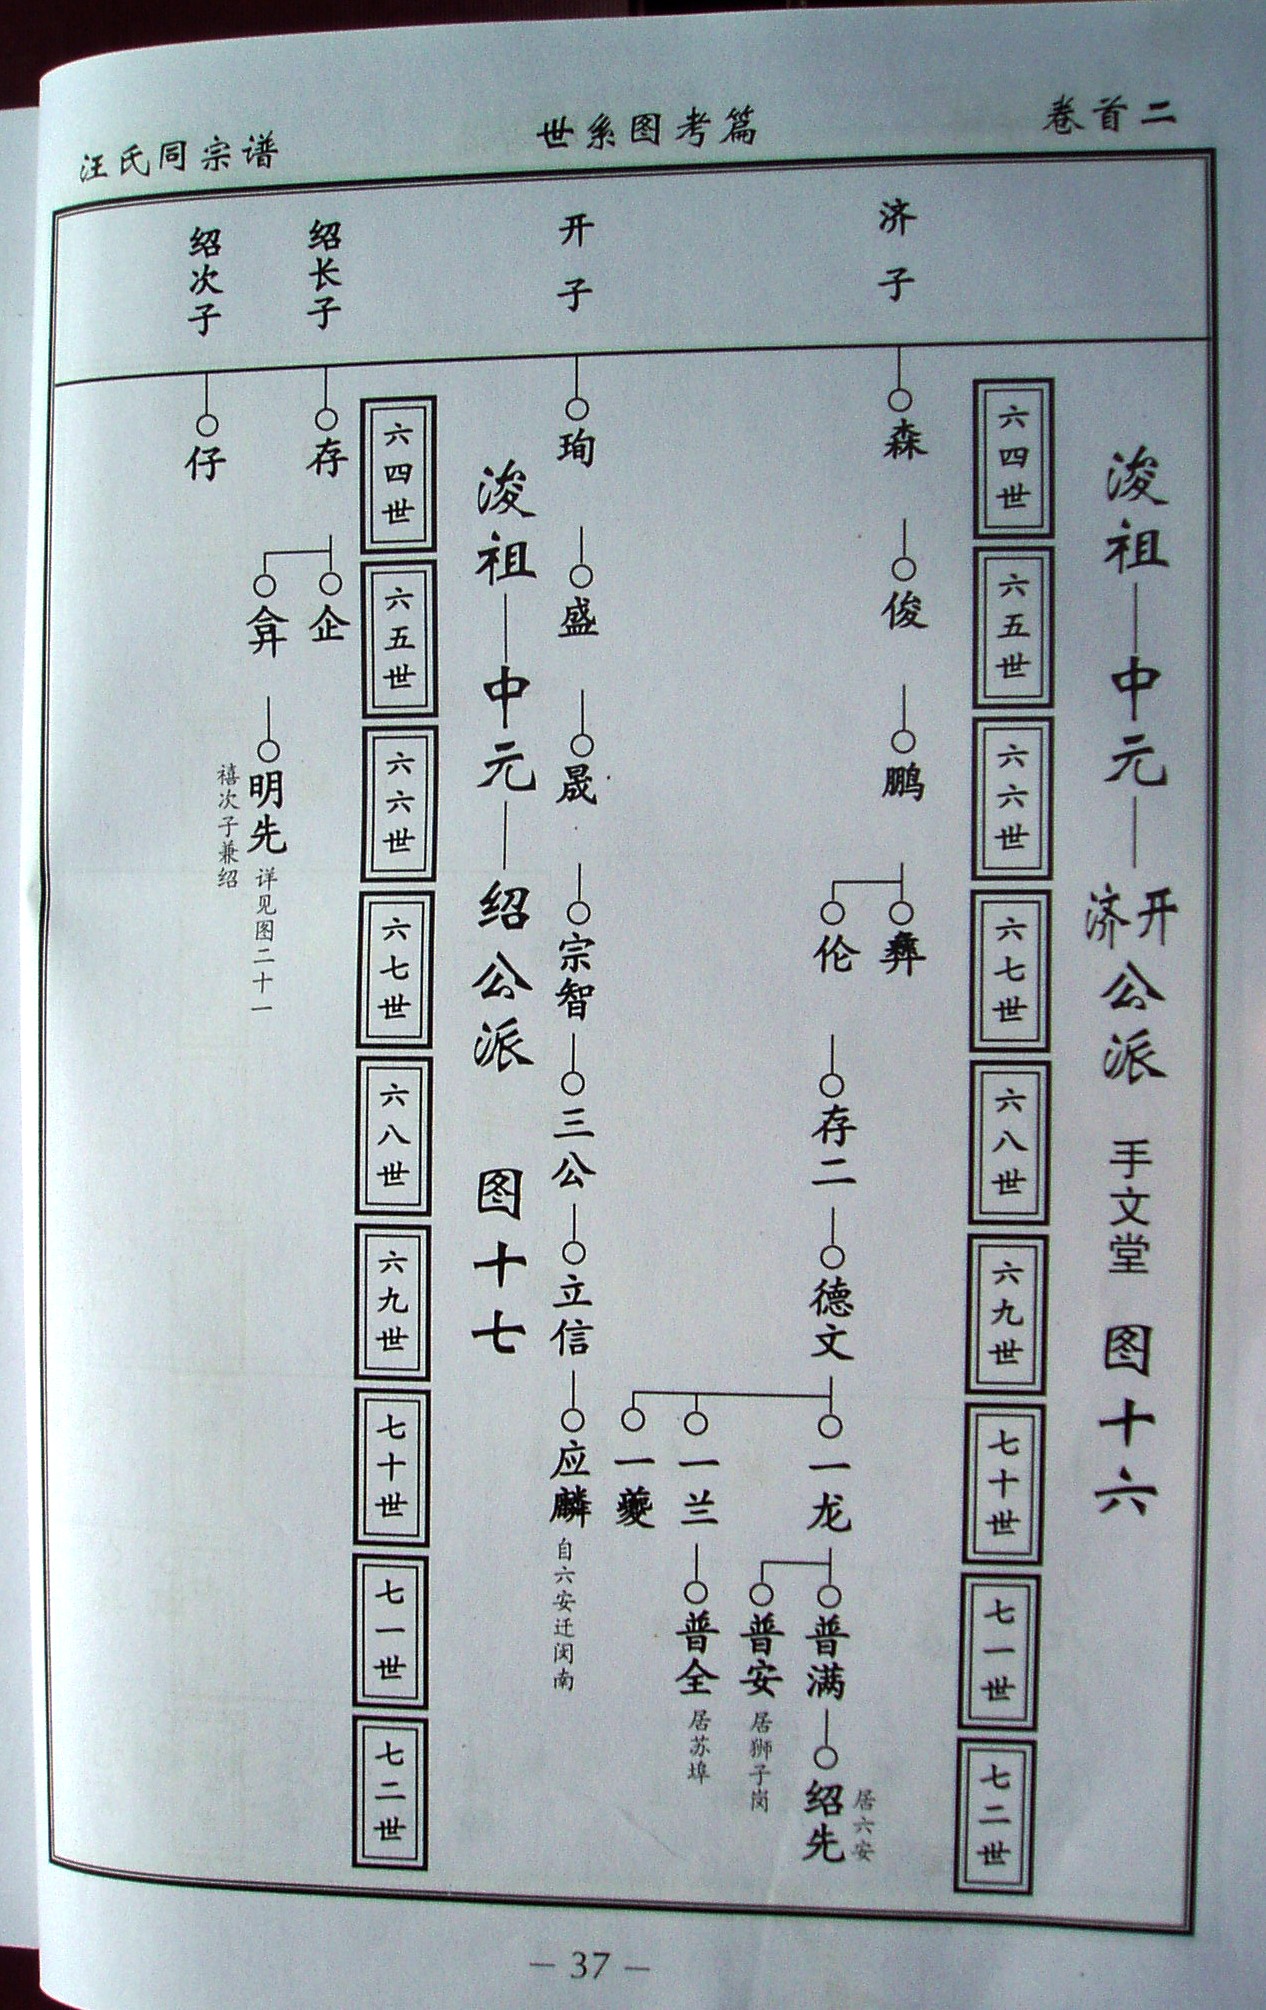 卷首二
世系图考篇
汪氏同宗谱
浚祖—中元—开济公派 手文堂 图十六
六四世
六五世
六六世
六七世
六八世
六九世
七十世
七一世
七二世
济子
森
俊
鹏
彝
伦
存二
德文
一龙
一兰
一夔
普满
普安
居狮子岗
普全
居苏埠
绍先
居六安
开子
珣
盛
晟
宗智
三公
立信
应麟
自六安迁闵南
浚祖—中元—绍公派 图十七
六四世
六五世
六六世
六七世
六八世
六九世
七十世
七一世
七二世
绍长子
存
企
弇
明先
详见图二十一
禧次子兼绍
绍次子
仔
— 37 —